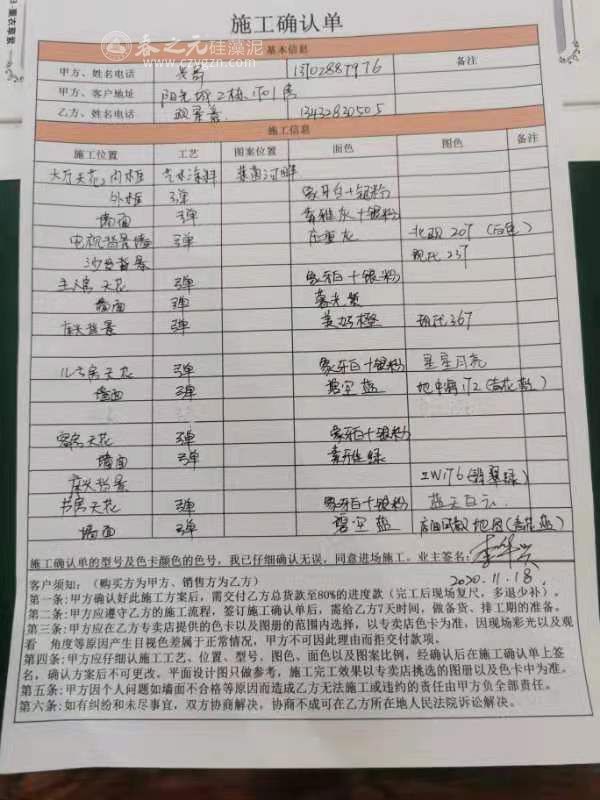 施工确认单
春之元硅藻泥
www.czygzn.com
基本信息 备注
甲方、姓名电话 13702887976
甲方、客户地址 阳光城2栋1701房
乙方、姓名电话 13432830505
施工信息 备注
施工位置 工艺 图案位置 面色 图色
大厅天花 内框
外框 弹 象牙白+银粉
墙面 弹 素雅灰+银粉
电视背景墙 弹 北欧207(白色)
沙发背景 现代237
主人房天花 弹 象牙白+银粉
墙面 弹
床头背景 弹 现代367
儿子房天花 弹 象牙白+银粉 星星月亮
墙面 弹 碧空蓝 地中海172(
客房天花 弹 象牙白+银粉
墙面 弹 素雅绿
床头背景 翡翠绿)
书房天花 弹 象牙白+银粉 蓝天白云
墙面 弹 碧空蓝 地图(
施工确认单的型号及色卡颜色的色号，我已仔细确认无误，同意进场施工。业主签名：
2020.11.18.
客户须知：（购买方为甲方、销售方为乙方）
第一条:甲方确认好此施工方案后，需交付乙方总货款至80%的进度款（完工后现场复尺，多退少补）。
第二条:甲方应遵守乙方的施工流程，签订施工确认单后，需给乙方7天时间，做备货、排工期的准备。
第三条:甲方应在乙方专卖店提供的色卡以及图册的范围内选择，以专卖店色卡为准，因现场彩光以及观
看 角度等原因产生目视色差属于正常情况，甲方不可因此理由而拒交付款项。
第四条:甲方应仔细认施工工艺、位置、型号、图色、面色以及图案比例，经确认后在施工确认单上签
名，确认方案后不可更改，平面设计图只做参考，施工完工效果以专卖店挑选的图册以及色卡中为准。
第五条:甲方因个人问题如墙面不合格等原因而造成乙方无法施工或违约的责任由甲方负全部责任。
第六条:如有纠纷和未尽事宜，双方协商解决，协商不成可在乙方所在地人民法院诉讼解决。